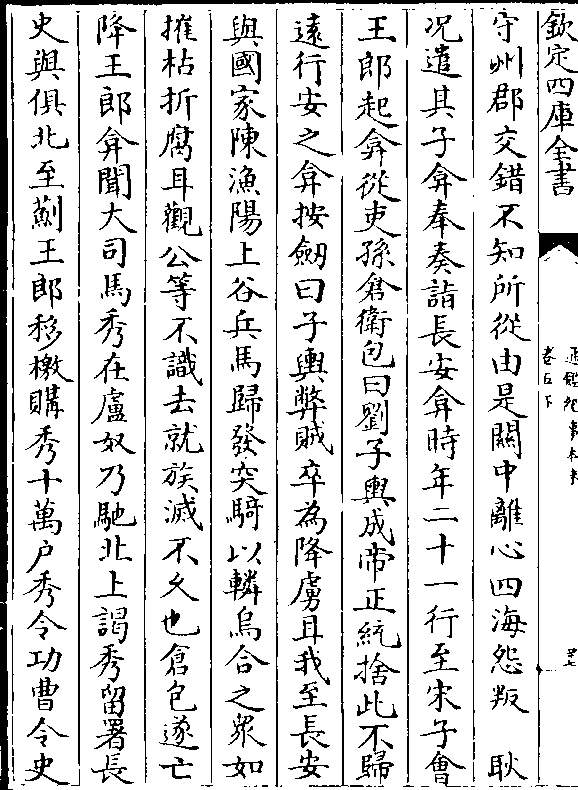 欽定四庫全書
通鑑紀事本末
卷五下
守州郡交錯不知所從由是關中離心四海怨叛　耿
况遣其子弇奉奏詣長安弇時年二十一行至宋子會
王郎起弇從吏孫倉衛包曰劉子輿成帝正統捨此不歸
遠行安之弇按劒曰子輿弊賊卒為降虜耳我至長安
與國家陳漁陽上谷兵馬歸發突騎以轔烏合之衆如
摧枯折腐耳觀公等不識去就族滅不久也倉包遂亡
降王郎弇聞大司馬秀在盧奴乃馳北上謁秀留署長
史與俱北至薊王郎移檄購秀十萬户秀令功曹令史